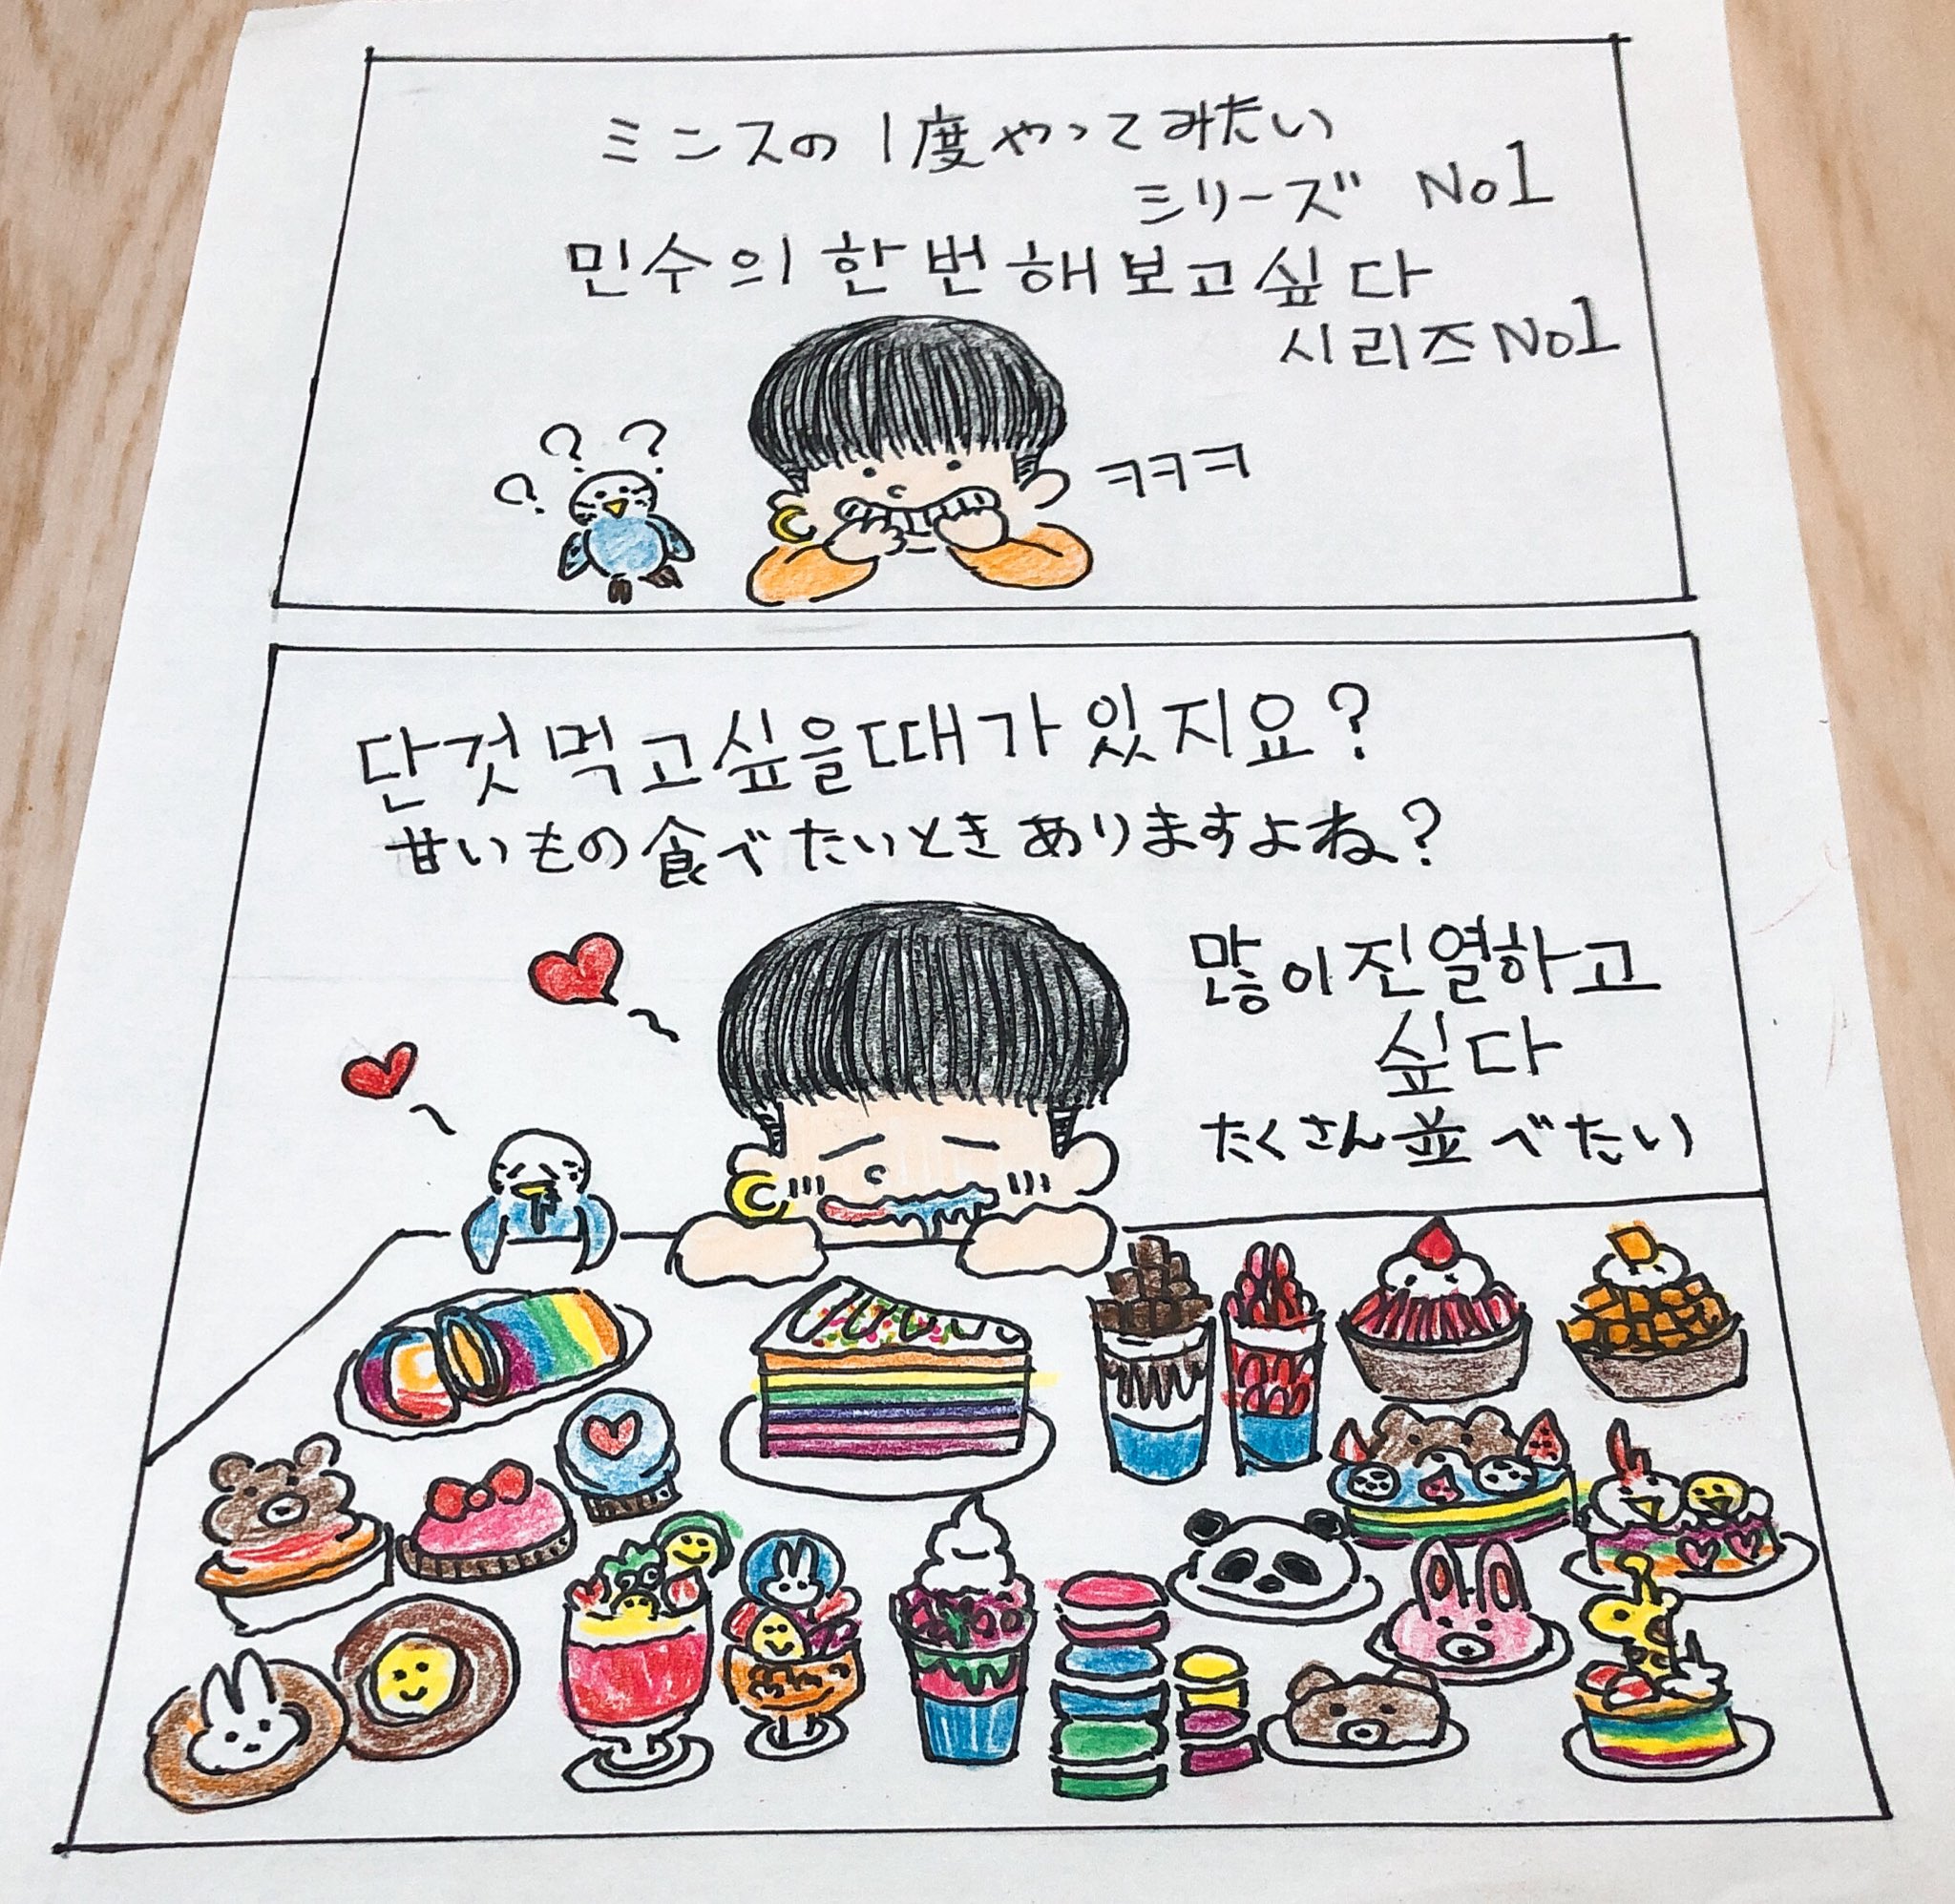 ミンスの1度やってみたい
シリーズ No1
민수의 한번해보고싶다
시리즈 No1
? ? ?
ㅋㅋㅋ
단것 먹고싶을때가 있지요?
甘いもの食べたいときありますよね?
많이진열하고
싶다
たくさん並べたい